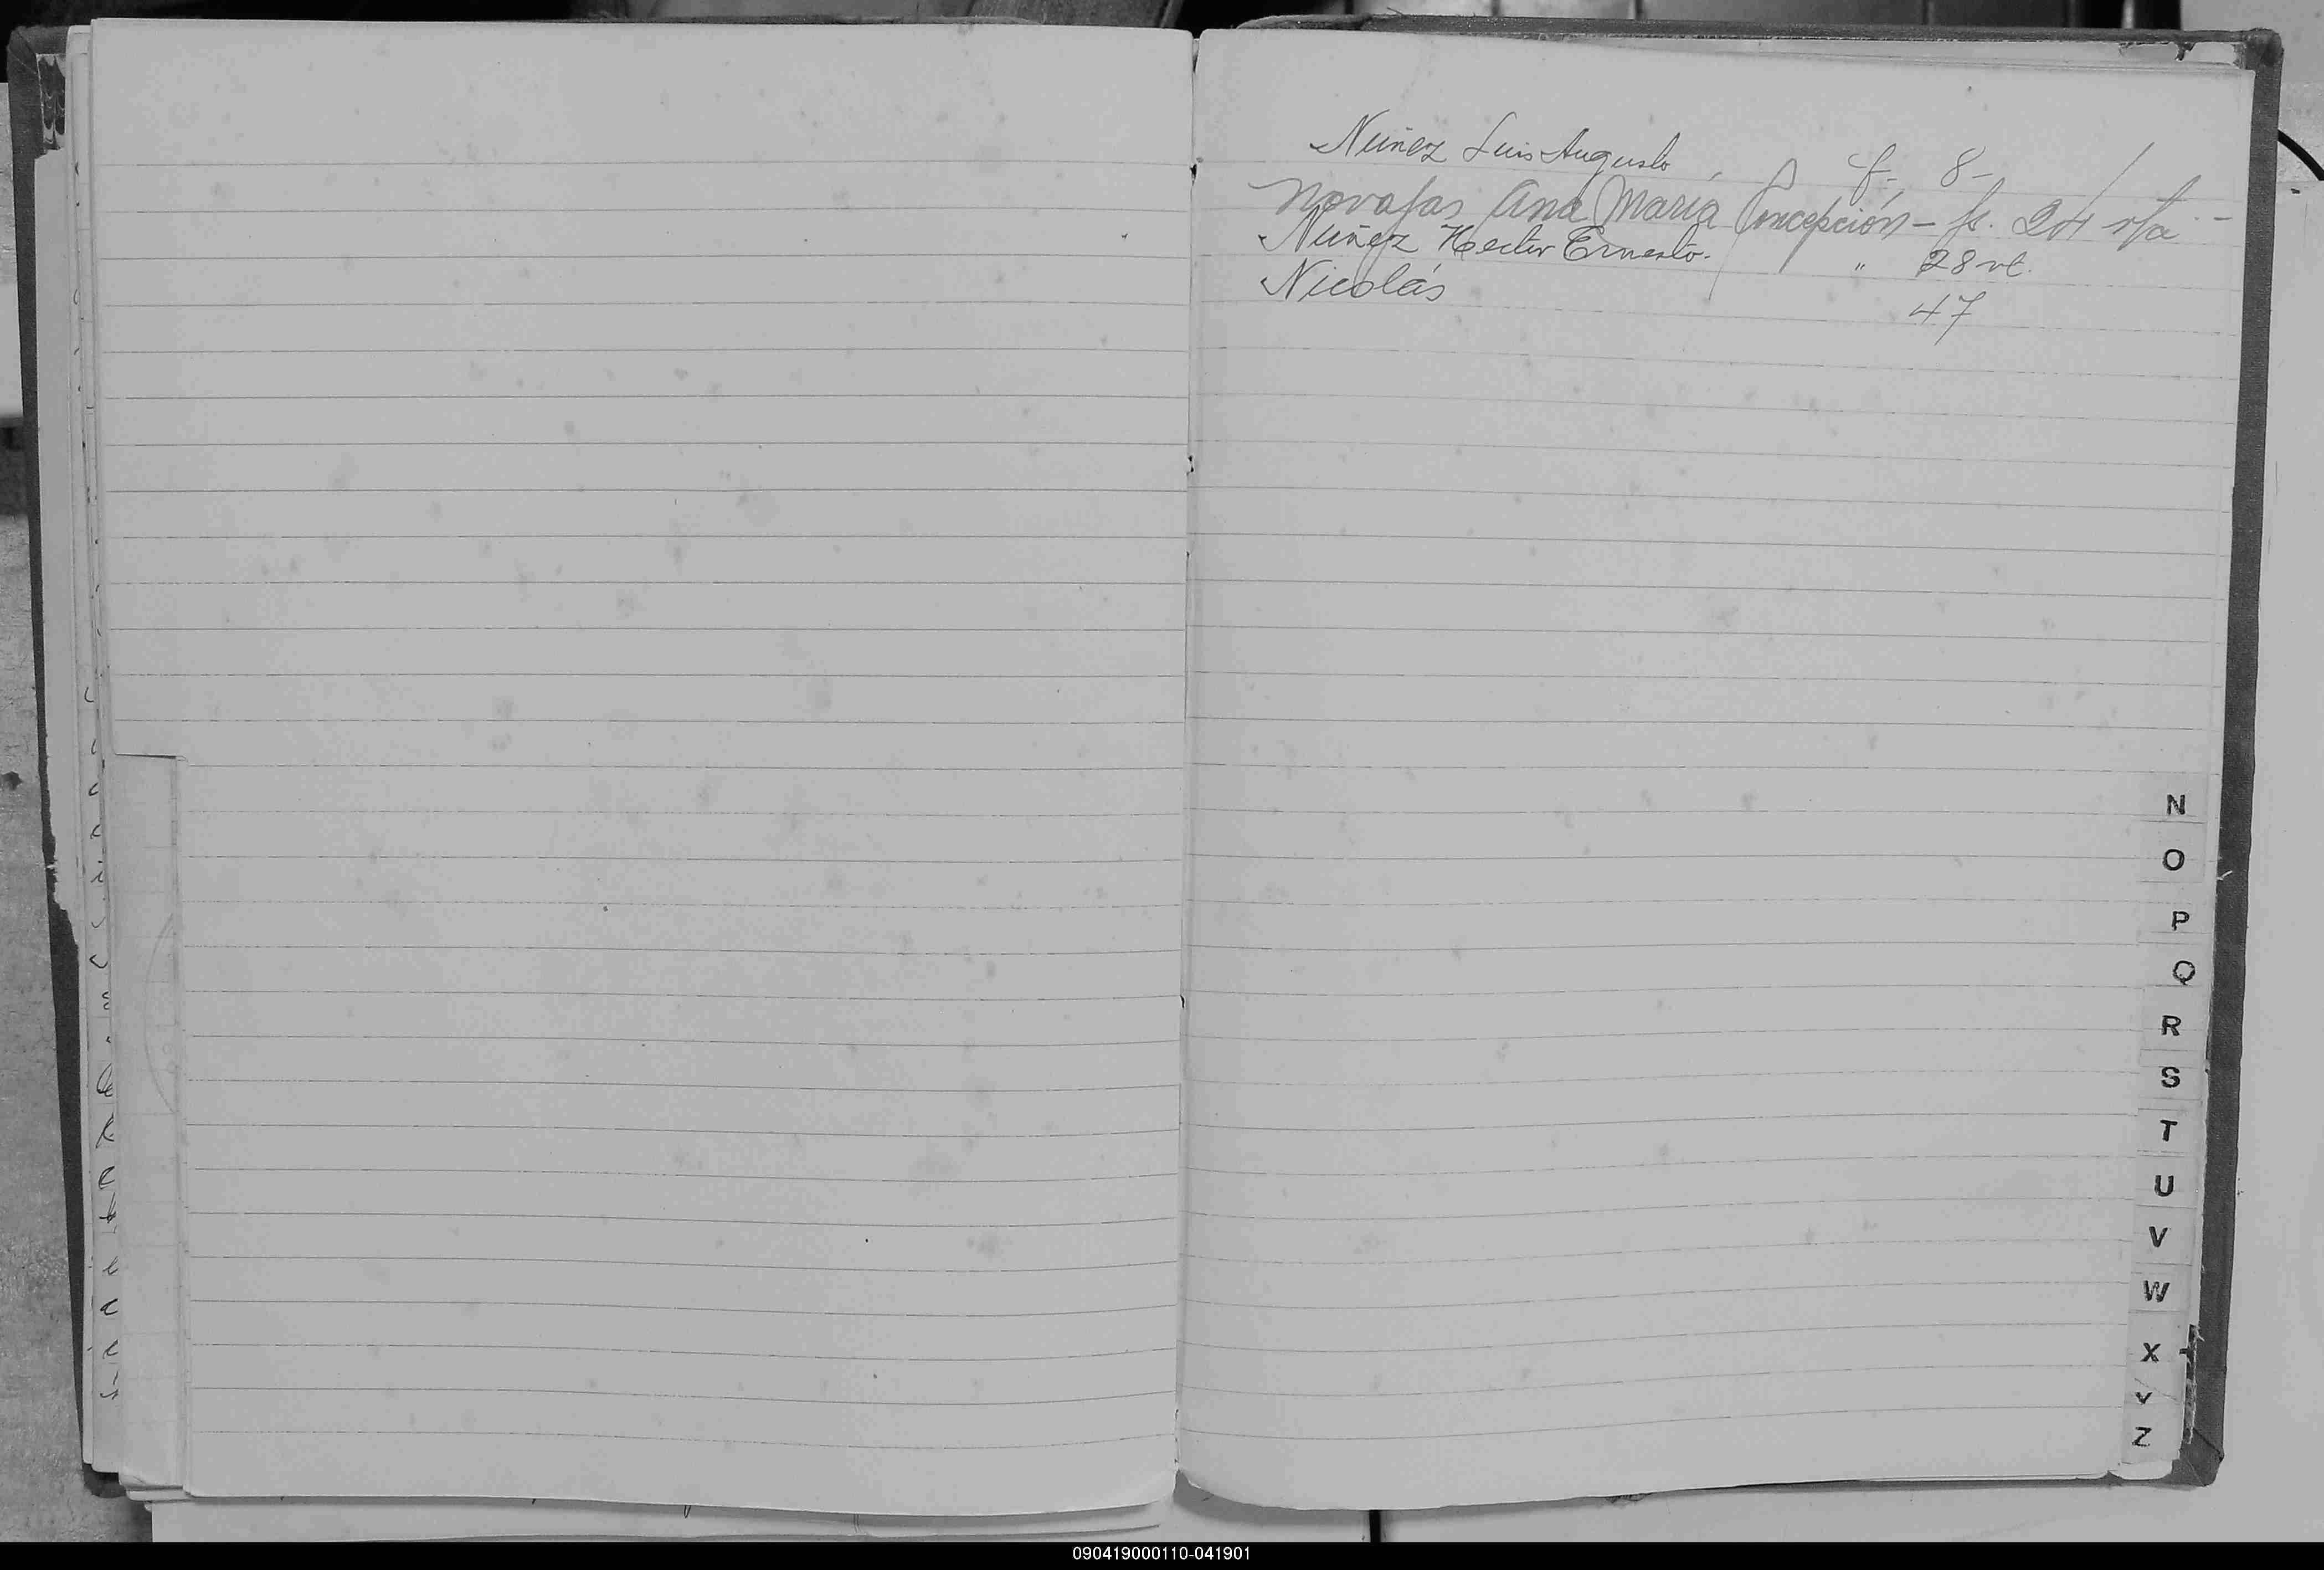 Nuñez Luis Augusto f. 8-
Novajas Ana María Concepción - fs. 24 vta -
Nuñez Hector Ernesto. " 28 vt.
Nicolás 47
N
O
P
Q
R
S
T
U
V
W
X
Y
Z
090419000110-041901